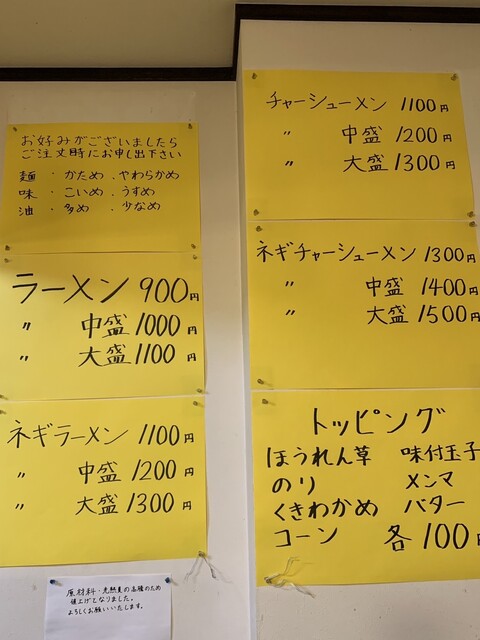 お好みがございましたら
ご注文時にお申し出下さい
麺・かため、やわらかめ
味・こいめ、うすめ
油・多め、少なめ
ラーメン 900円
〃 中盛 1000円
〃 大盛 1100円
ネギラーメン 1100円
〃 中盛 1200円
〃 大盛 1300円
原材料・光熱費の高騰のため
値上げとなりました。
よろしくお願いいたします。
チャーシューメン 1100円
〃 中盛 1200円
〃 大盛 1300円
ネギチャーシューメン 1300円
〃 中盛 1400円
〃 大盛 1500円
トッピング
ほうれん草 味付玉子
のり メンマ
くきわかめ バター
コーン 各100円